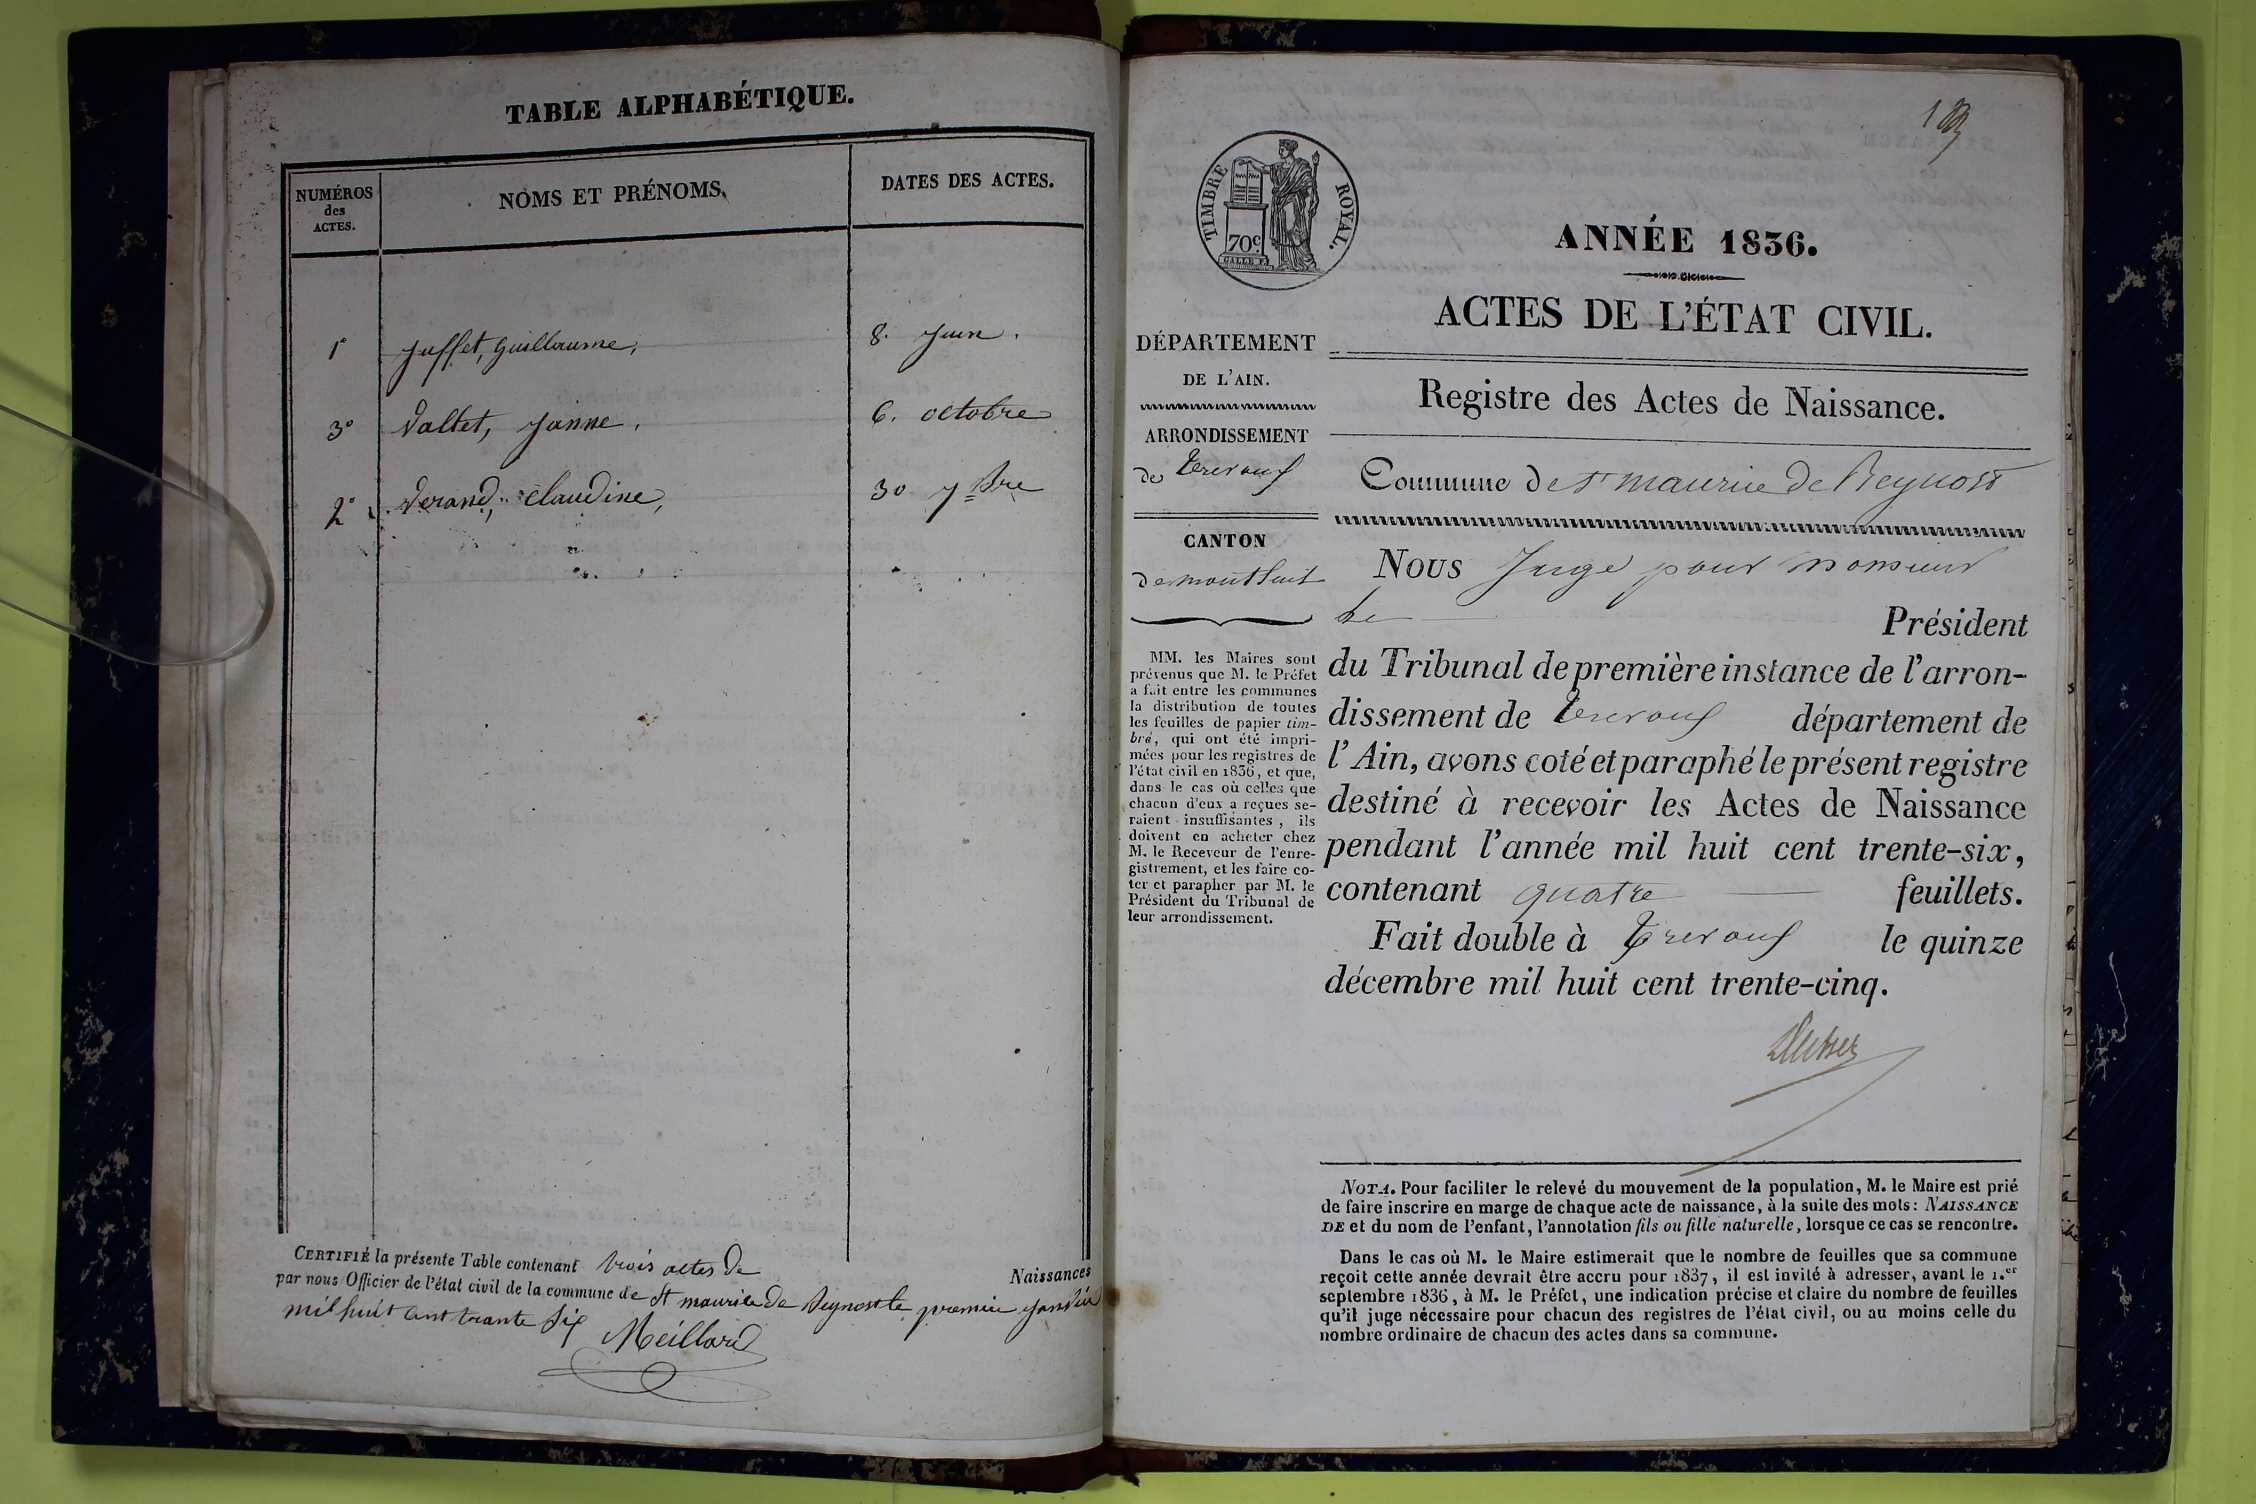 TABLE ALPHABÉTIQUE.
NUMÉROS
des
ACTES.
NOMS ET PRÉNOMS.
DATES DES ACTES.
1° Juffet, Guillaume, 8. Juin.
3° Valtet, Janne, 6. octobre
2° Verand, Claudine, 30 7bre
CERTIFIÉ la présente Table contenant trois actes de Naissances
par nous Officier de l'état civil de la commune de St maurice de Beynost le premier janvier
mil huit cent trante six
Meillard
TIMBRE ROYAL.
70c
ANNÉE 1836.
ACTES DE L'ÉTAT CIVIL.
Registre des Actes de Naissance.
Commune de St maurice de Beynost
DÉPARTEMENT
DE L'AIN.
ARRONDISSEMENT
de Trevoux
CANTON
de montluel
MM. les Maires sont
prévenus que M. le Préfet
a fait entre les communes
la distribution de toutes
les feuilles de papier tim-
bré, qui ont été impri-
mées pour les registres de
l'état civil en 1836, et que,
dans le cas où celles que
chacun d'eux a reçues se-
raient insuffisantes, ils
doivent en acheter chez
M. le Receveur de l'enre-
gistrement, et les faire co-
ter et parapher par M. le
Président du Tribunal de
leur arrondissement.
Nous Juge pour monsieur
le Président
du Tribunal de première instance de l'arron-
dissement de Trevoux département de
l'Ain, avons coté et paraphé le présent registre
destiné à recevoir les Actes de Naissance
pendant l'année mil huit cent trente-six,
contenant quatre feuillets.
Fait double à Trevoux le quinze
décembre mil huit cent trente-cinq.
NOTA. Pour faciliter le relevé du mouvement de la population, M. le Maire est prié
de faire inscrire en marge de chaque acte de naissance, à la suite des mots: NAISSANCE
DE et du nom de l'enfant, l'annotation fils ou fille naturelle, lorsque ce cas se rencontre.
Dans le cas où M. le Maire estimerait que le nombre de feuilles que sa commune
reçoit cette année devrait être accru pour 1837, il est invité à adresser, avant le 1.er
septembre 1836, à M. le Préfet, une indication précise et claire du nombre de feuilles
qu'il juge nécessaire pour chacun des registres de l'état civil, ou au moins celle du
nombre ordinaire de chacun des actes dans sa commune.